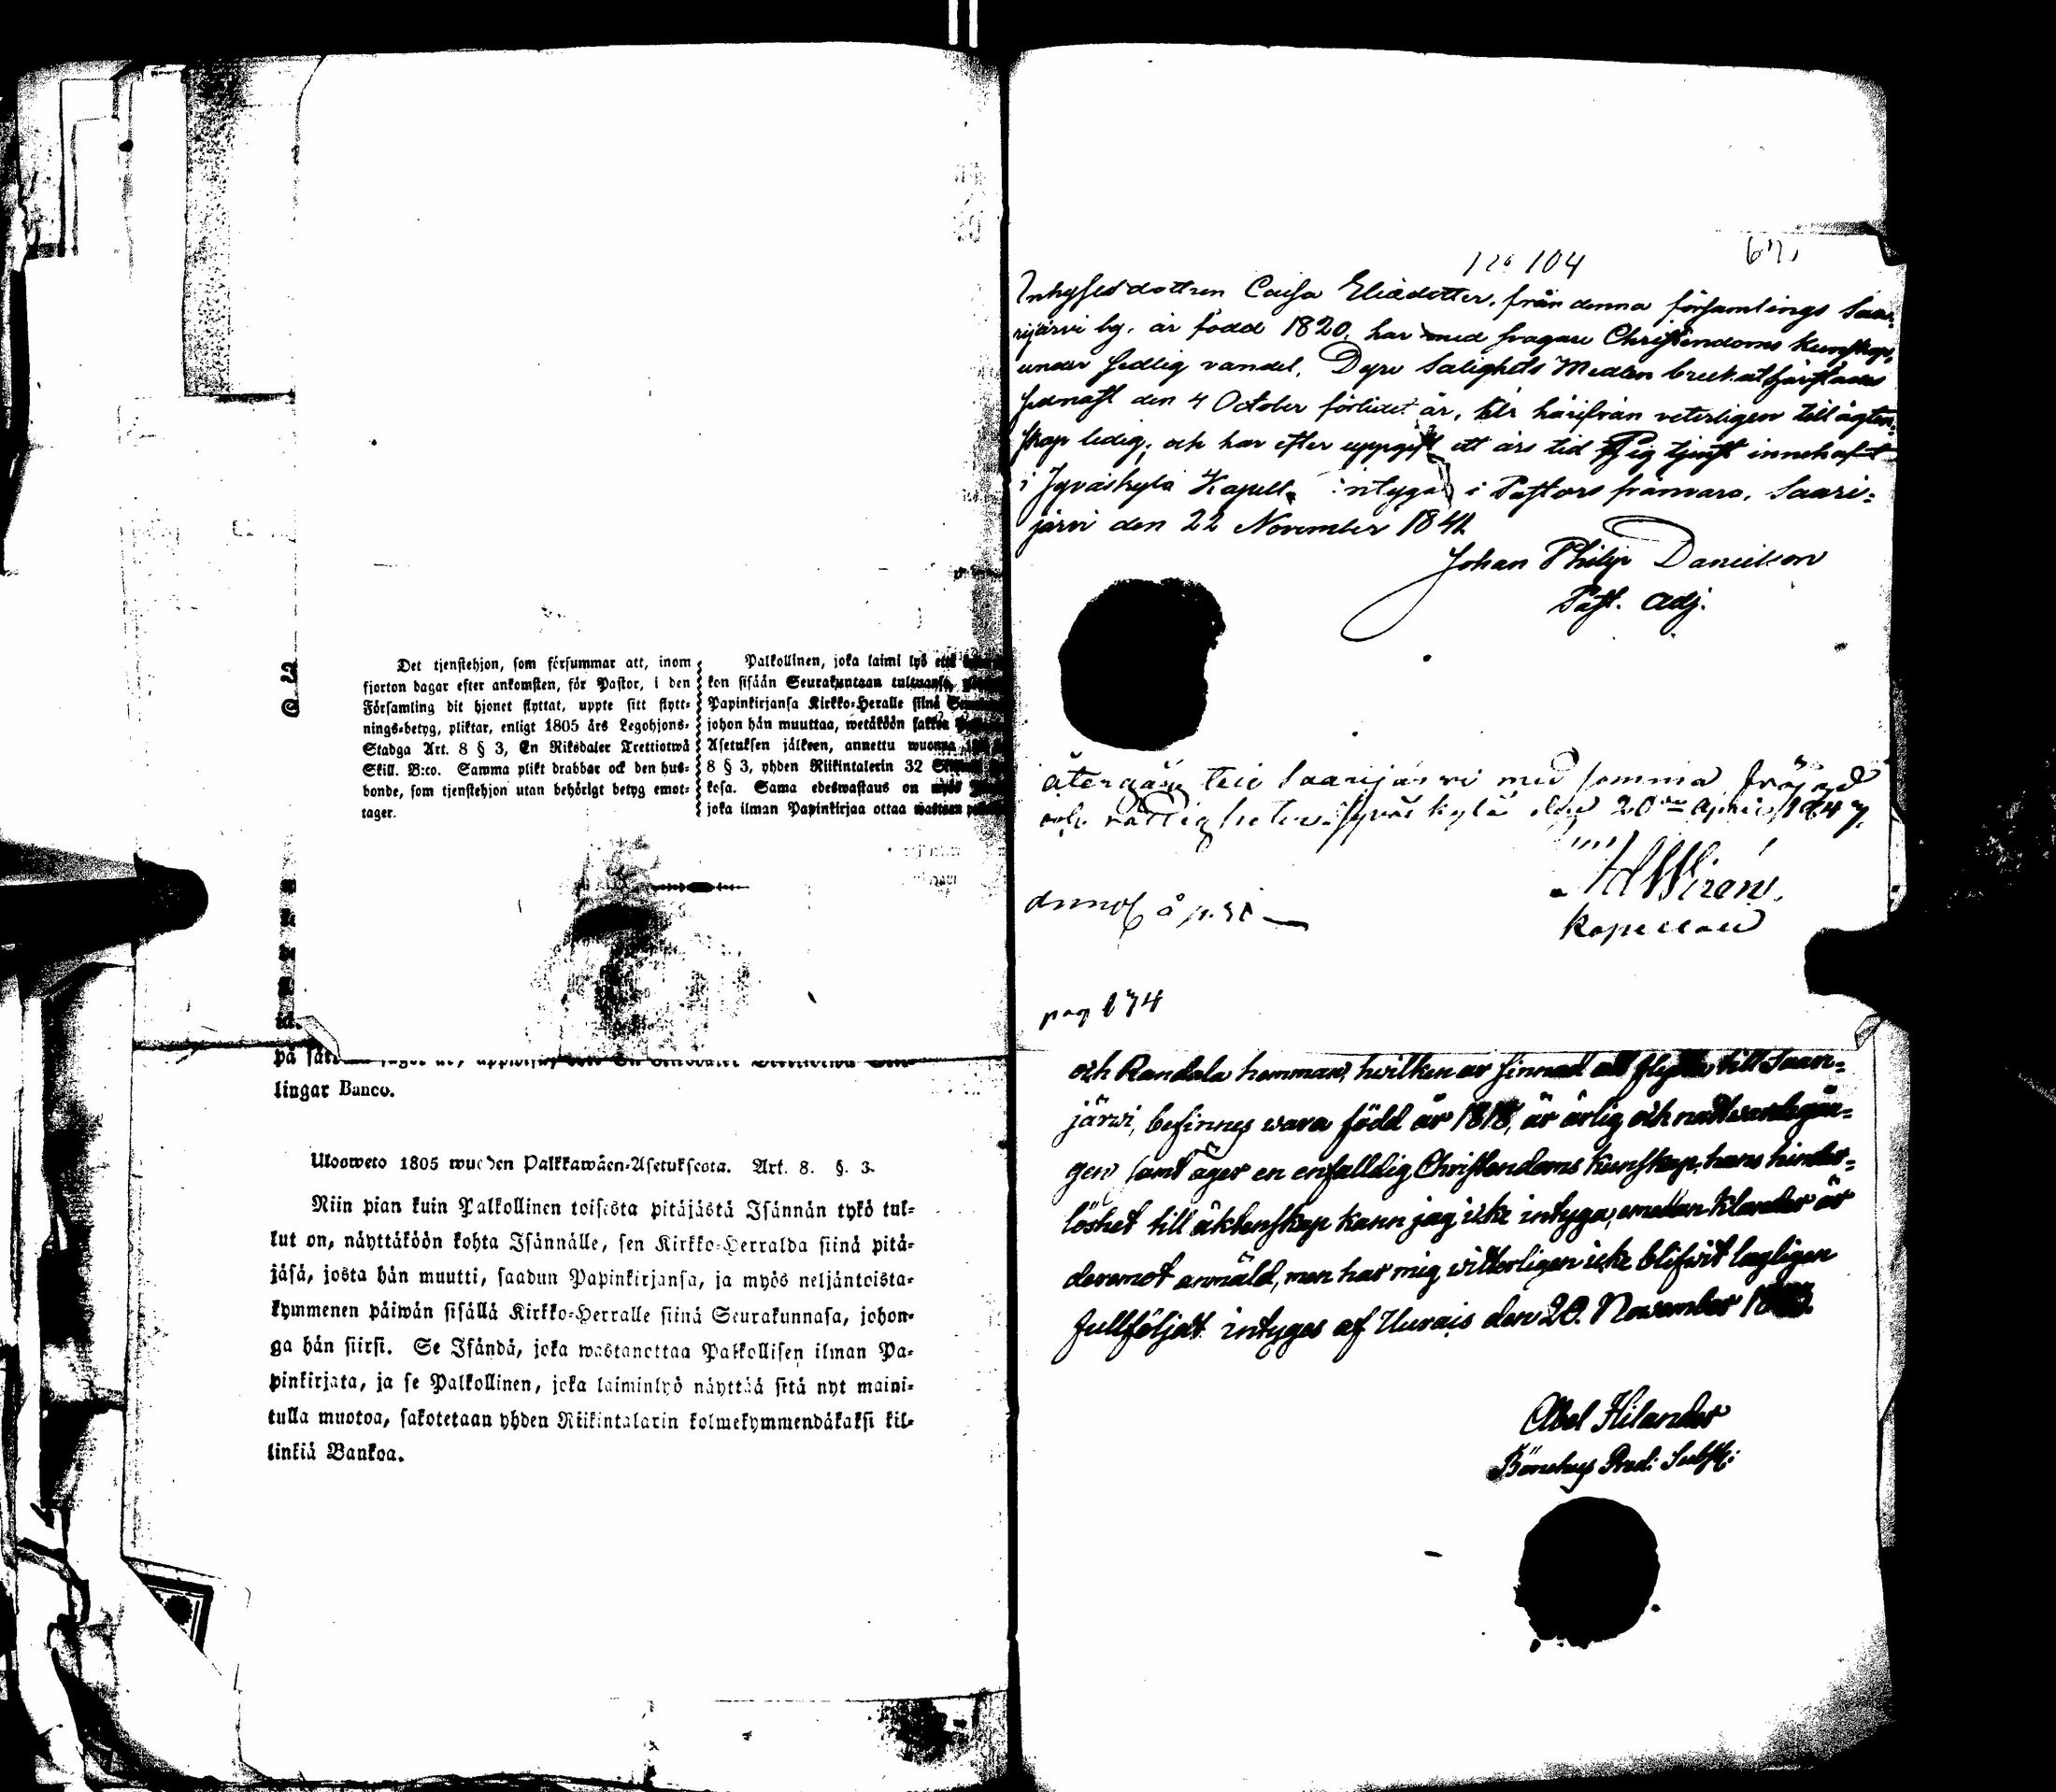 Det tjenstehjon, som försummar att, inom
fjorton dagar efter ankomsten, för Pastor, i den
Församling dit hjonet flyttat, uppte sitt flytt-
nings-betyg, pliktar, enligt 1805 års Legohjons-
Stadga Art. 8 § 3, En Riksdaler Trettiotwå
Skill. B:co. Samma plikt drabbar ock den hus-
bonde, som tjenstehjon utan behörigt betyg emot-
tager.
Palkollinen, joka laimi lyö että
kon sisään Seurakuntaan tultuansa,
Papinkirjansa Kirkko-Heralle siinä
johon hän muuttaa, wetäköön sakkoa
Asetuksen jälkeen, annettu wuonna
8 § 3, yhden Riikintalerin 32
kosa. Sama edeswastaus on myös
joka ilman Papinkirjaa ottaa wastaan
på
lingar Banco.
Uloosweto 1805 wuoden Palkkawäen-Asetuksesta. Art. 8. §. 3.
Niin pian kuin Palkollinen toisesta pitäjästä Isännän tykö tul-
lut on, näyttäköön kohta Isännälle, sen Kirkko-Herralda siinä pitä-
jäsä, josta hän muutti, saadun Papinkirjansa, ja myös neljäntoista-
kymmenen päiwän sisällä Kirkko-Herralle siinä Seurakunnasa, johon-
ga hän siirsi. Se Isändä, joka wastanottaa Palkollisen ilman Pa-
pinkirjata, ja se Palkollinen, joka laiminlyö näyttää sitä nyt maini-
tulla muotoa, sakotetaan yhden Riikintalarin kolmekymmendäkaksi kil-
linkiä Bankoa.
No 104
67,
Inhyses dottren Caisa Eliædotter, från denna församlings Saa-
rijärvi by, är född 1820, har med svagare Christendoms kunskap,
under sedlig vandel, Dyre Salighets Medlen
sednast den 4 October förlidet år, är härifrån veterligen till ägten-
skap ledig, och har efter uppgift ett års tid Pigtjenst innehaft
i Jyväskylä Kapell, intygas i Pastors frånvaro, Saari-
järvi den 22 November 1841.
Johan Philip Danielson
Past. Adj.
återgår till Saarijärvi med samma frägd
och rättigheter. Jyväskylä den 20 April 1847.
Kapellan
pag 174
och Randala hemman, hvilken är sinnad att flytta till Saari-
järvi, befinnes wara född år 1818, är ärlig och nattwardsgån-
gen samt äger en enfalldig Christendoms kunskap, hans hinder-
löshet till äktenskap kann jag icke intyga, emedan klander är
deremot anmäld, men har mig witterligen icke blifwit lagligen
fullföljdt intyges af Uurais den 20. November
Abel Hilander
Bönehus Pred: Subst: